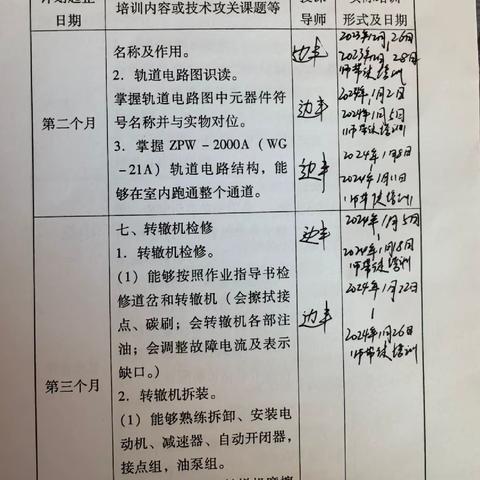 日期
培训内容或技术攻关课题等
导师
形式及日期
名称及作用。
2. 轨道电路图识读。
掌握轨道电路图中元器件符
号名称并与实物对位。
3. 掌握 ZPW-2000A（WG
-21A）轨道电路结构，能
够在室内跑通整个通道。
第二个月
边丰
边丰
边丰
2023年12月26日
2023年12月28日
师带徒培训
2024年1月2日
2024年1月5日
师带徒培训
2024年1月8日
2024年1月11日
师带徒培训
七、转辙机检修
1. 转辙机检修。
（1）能够按照作业指导书检
修道岔和转辙机（会擦拭接
点、碳刷；会转辙机各部注
油；会调整故障电流及表示
缺口。）
2. 转辙机拆装。
（1）能够熟练拆卸、安装电
动机、减速器、自动开闭器，
接点组，油泵组。
第三个月
边丰
边丰
2024年1月15日
2024年1月18日
师带徒培训
2024年1月22日
2024年1月26日
师带徒培训